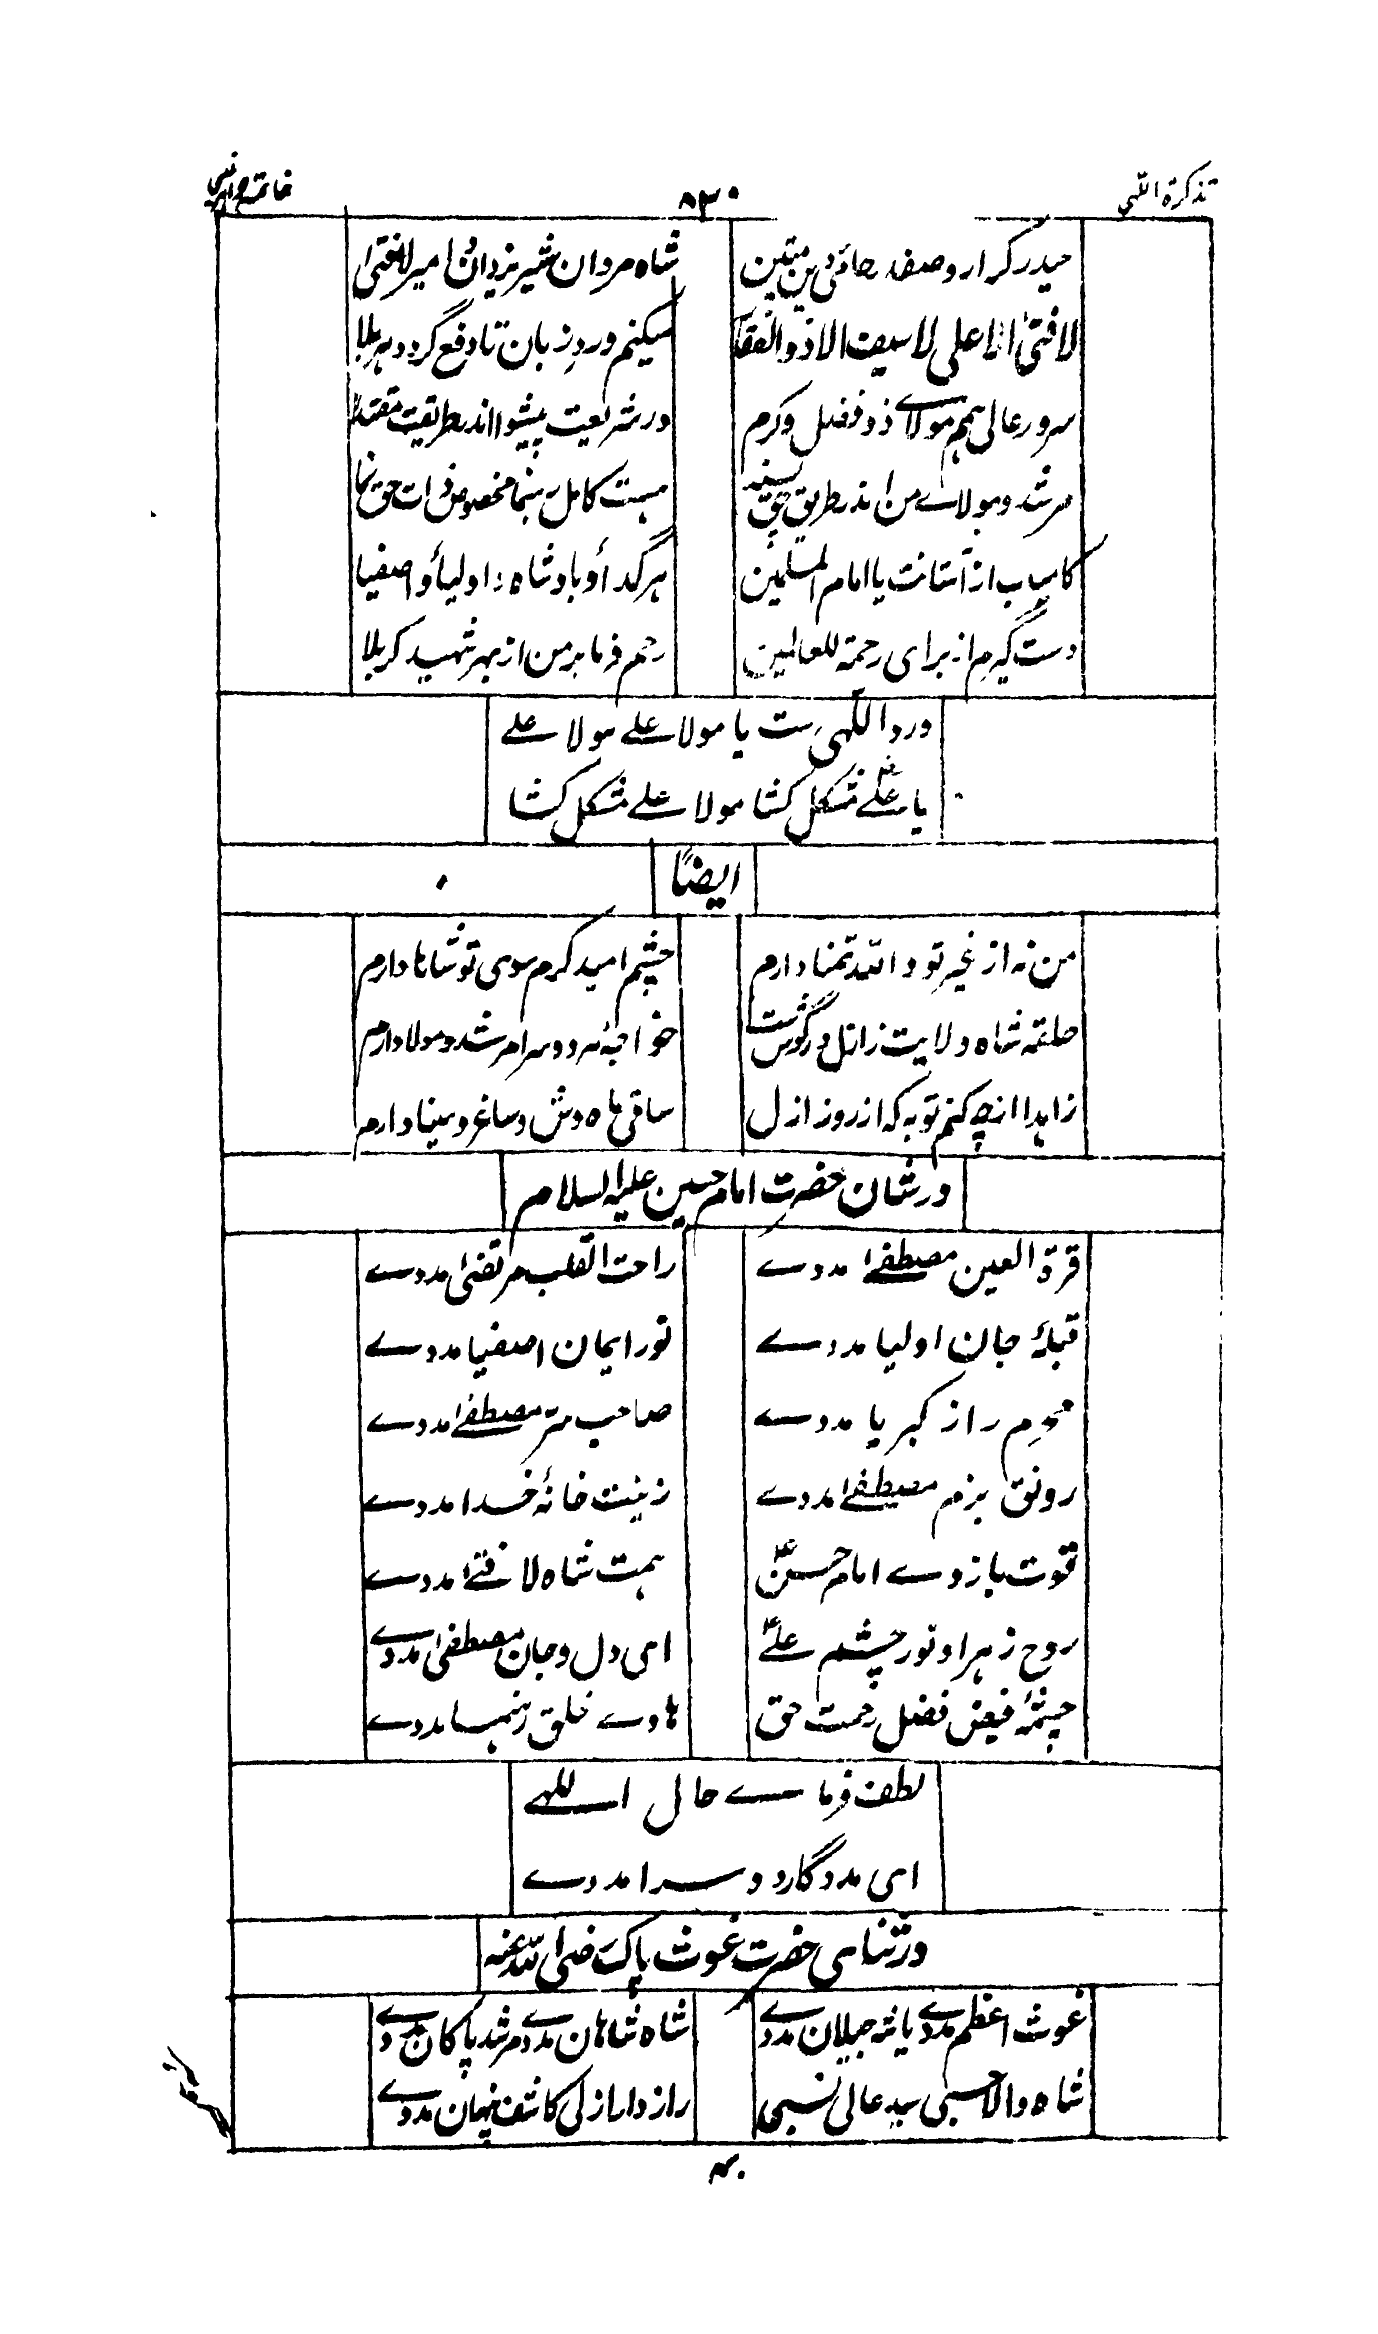 تذکرۃ اللہی ۸۳۰ خاتمہ
حیدر کرار و صفدر حامئ دین متین شاہ مردان شیر یزدان امیر لافتیٰ
لا فتیٰ الا علی لا سیف الا ذوالفقار میکنم ورد زبان تا دفع گردد ہر بلا
سرور عالی ہمم مولاے ذو فضل و کرم در شریعت پیشوا اندر طریقت مقتدا
مرشد و مولاے من اندر طریق حق پسند ہست کامل رہنما مخصوص ذات حق نما
کامیاب از آستانت یا امام المسلمین ہر گدا و بادشاہ و اولیا و اصفیا
دست گیرم از برای رحمۃ للعالمین رحم فرما بر من از بہر شہید کربلا
ورد اللہی ست یا مولا علے مولا علے
یا علے مشکل کشا مولا علے مشکل کشا
ایضاً
من نہ از غیر تو واللہ تمنا دارم چشم امید کرم سوی تو شاہا دارم
حلقہ شاہ ولایت ز ازل در گوشست خواجۂ ہر دو سرا مرشد و مولا دارم
زاہدا از چہ کنم توبہ کہ از روز ازل ساقی ماہ وش و ساغر و مینا دارم
در شان حضرت امام حسین علیہ السلام
قرۃ العین مصطفےٰ مددے راحت القلب مرتضیٰ مددے
قبلۂ جان اولیا مددے نور ایمان اصفیا مددے
محرم راز کبریا مددے صاحب سر مصطفےٰ مددے
رونق بزم مصطفےٰ مددے زینت خانۂ خدا مددے
قوت بازوے امام حسنؑ ہمت شاہ لا فتےٰ مددے
روح زہرا و نور چشم علےؑ ای دل و جان مصطفیٰ مددے
چشمۂ فیض فضل رحمت حق ہادے خلق رہنما مددے
لطف فرماے حال اللہے
ای مددگار دو سرا مددے
در ثنای حضرت غوث پاک رضی اللہ عنہ
غوث اعظم مددے یا شہ جیلان مددے شاہ شاہان مددے مرشد پاکان مددے
شاہ والا حسبی سید عالی نسبی راز دار ازلی کاشف پنہان مددے